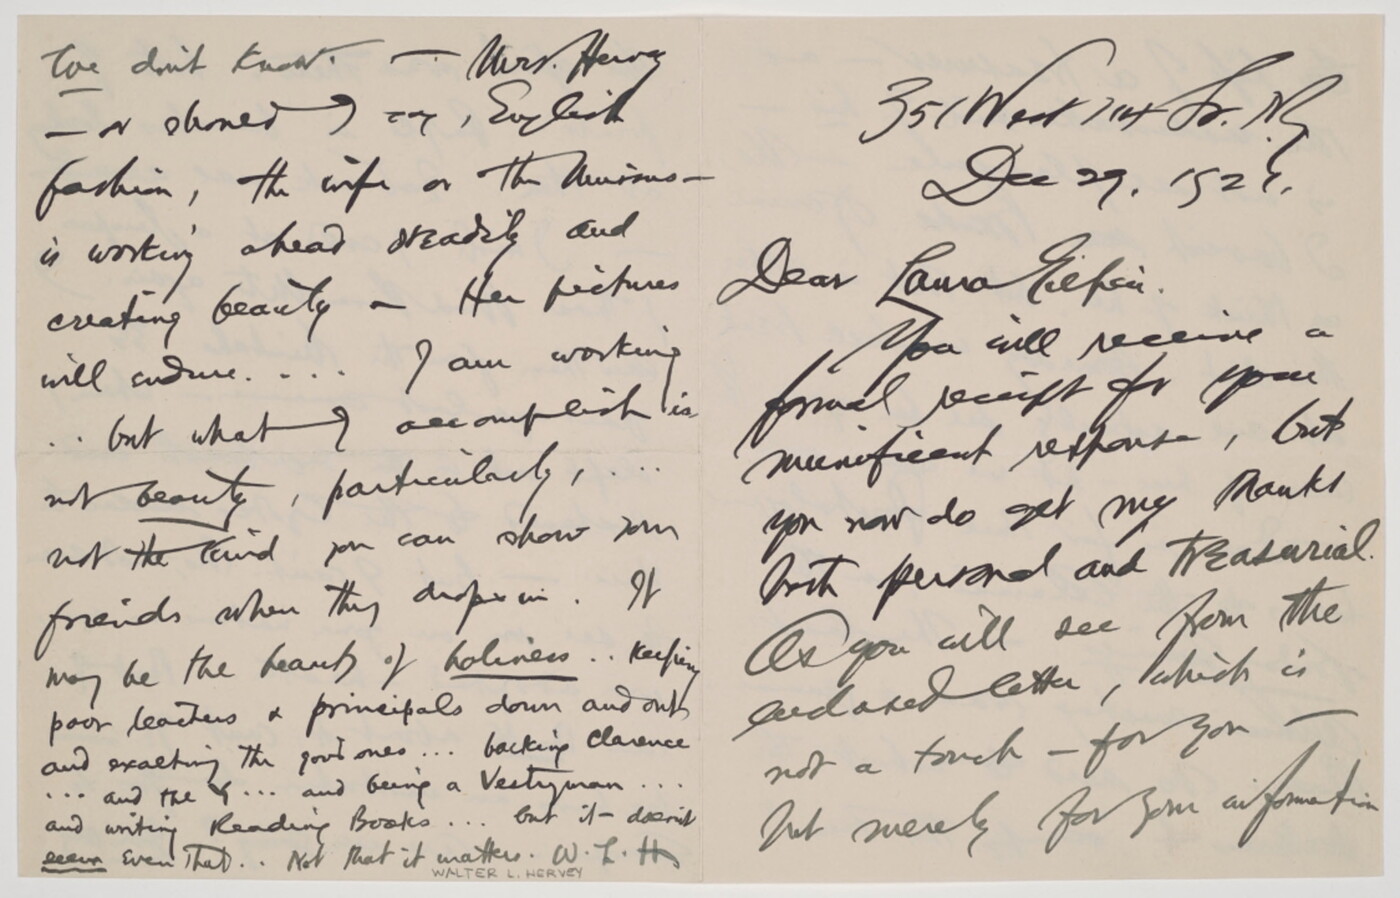 We don't know. — Mrs. Hervey
— or should I say, English
fashion, the wife or the Missus —
is working ahead steadily and
creating beauty — Her pictures
will endure. . . . I am working
. . but what I accomplish is
not beauty, particularly, . . .
not the kind you can show your
friends when they drop in. It
may be the beauty of holiness . . keeping
poor teachers & principals down and out
and exalting the good ones . . . backing Clarence
. . . and the Y . . . and being a Vestryman . . .
and writing Reading Books . . . but it doesn't
seem even that. . Not that it matters. W. L. H.
WALTER L. HERVEY
351 West 114 St. N.Y
Dec 29.
Dear Laura Gilpin.
You will receive a
formal receipt for your
munificent response, but
you now do get my thanks
both personal and treasurial.
As you will see from the
enclosed letter, which is
not a touch — for you
but merely for your information